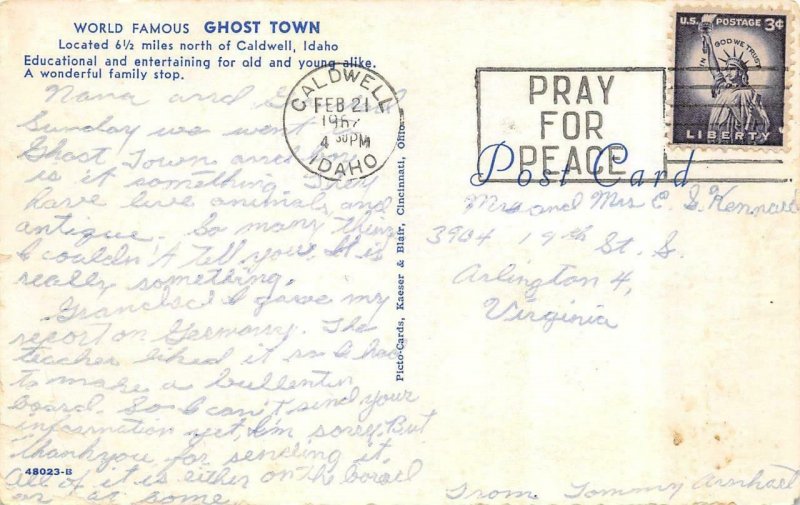 WORLD FAMOUS GHOST TOWN
Located 6½ miles north of Caldwell, Idaho
Educational and entertaining for old and young alike.
A wonderful family stop.
Nana and
Sunday we went to
Ghost Town and boy
is it something. They
have live animals and
antique. So many things
I couldn't tell you. It is
really something.
I gave my
report on Germany. The
teacher liked it so I have
to make a bullentin
board. So I can't send your
information yet, I'm sorry. But
thankyou for sending it.
All of it is either on the board
or at home.
48023-B
Picto-Cards, Kaeser & Blair, Cincinnati, Ohio
CALDWELL
FEB 21
4 30 PM
IDAHO
PRAY
FOR
PEACE
U.S. POSTAGE 3¢
IN GOD WE TRUST
LIBERTY
Post Card
Mrs and Mrs E. S. Kennard
3904 19th St. S.
Arlington 4,
Virginia
From Tommy